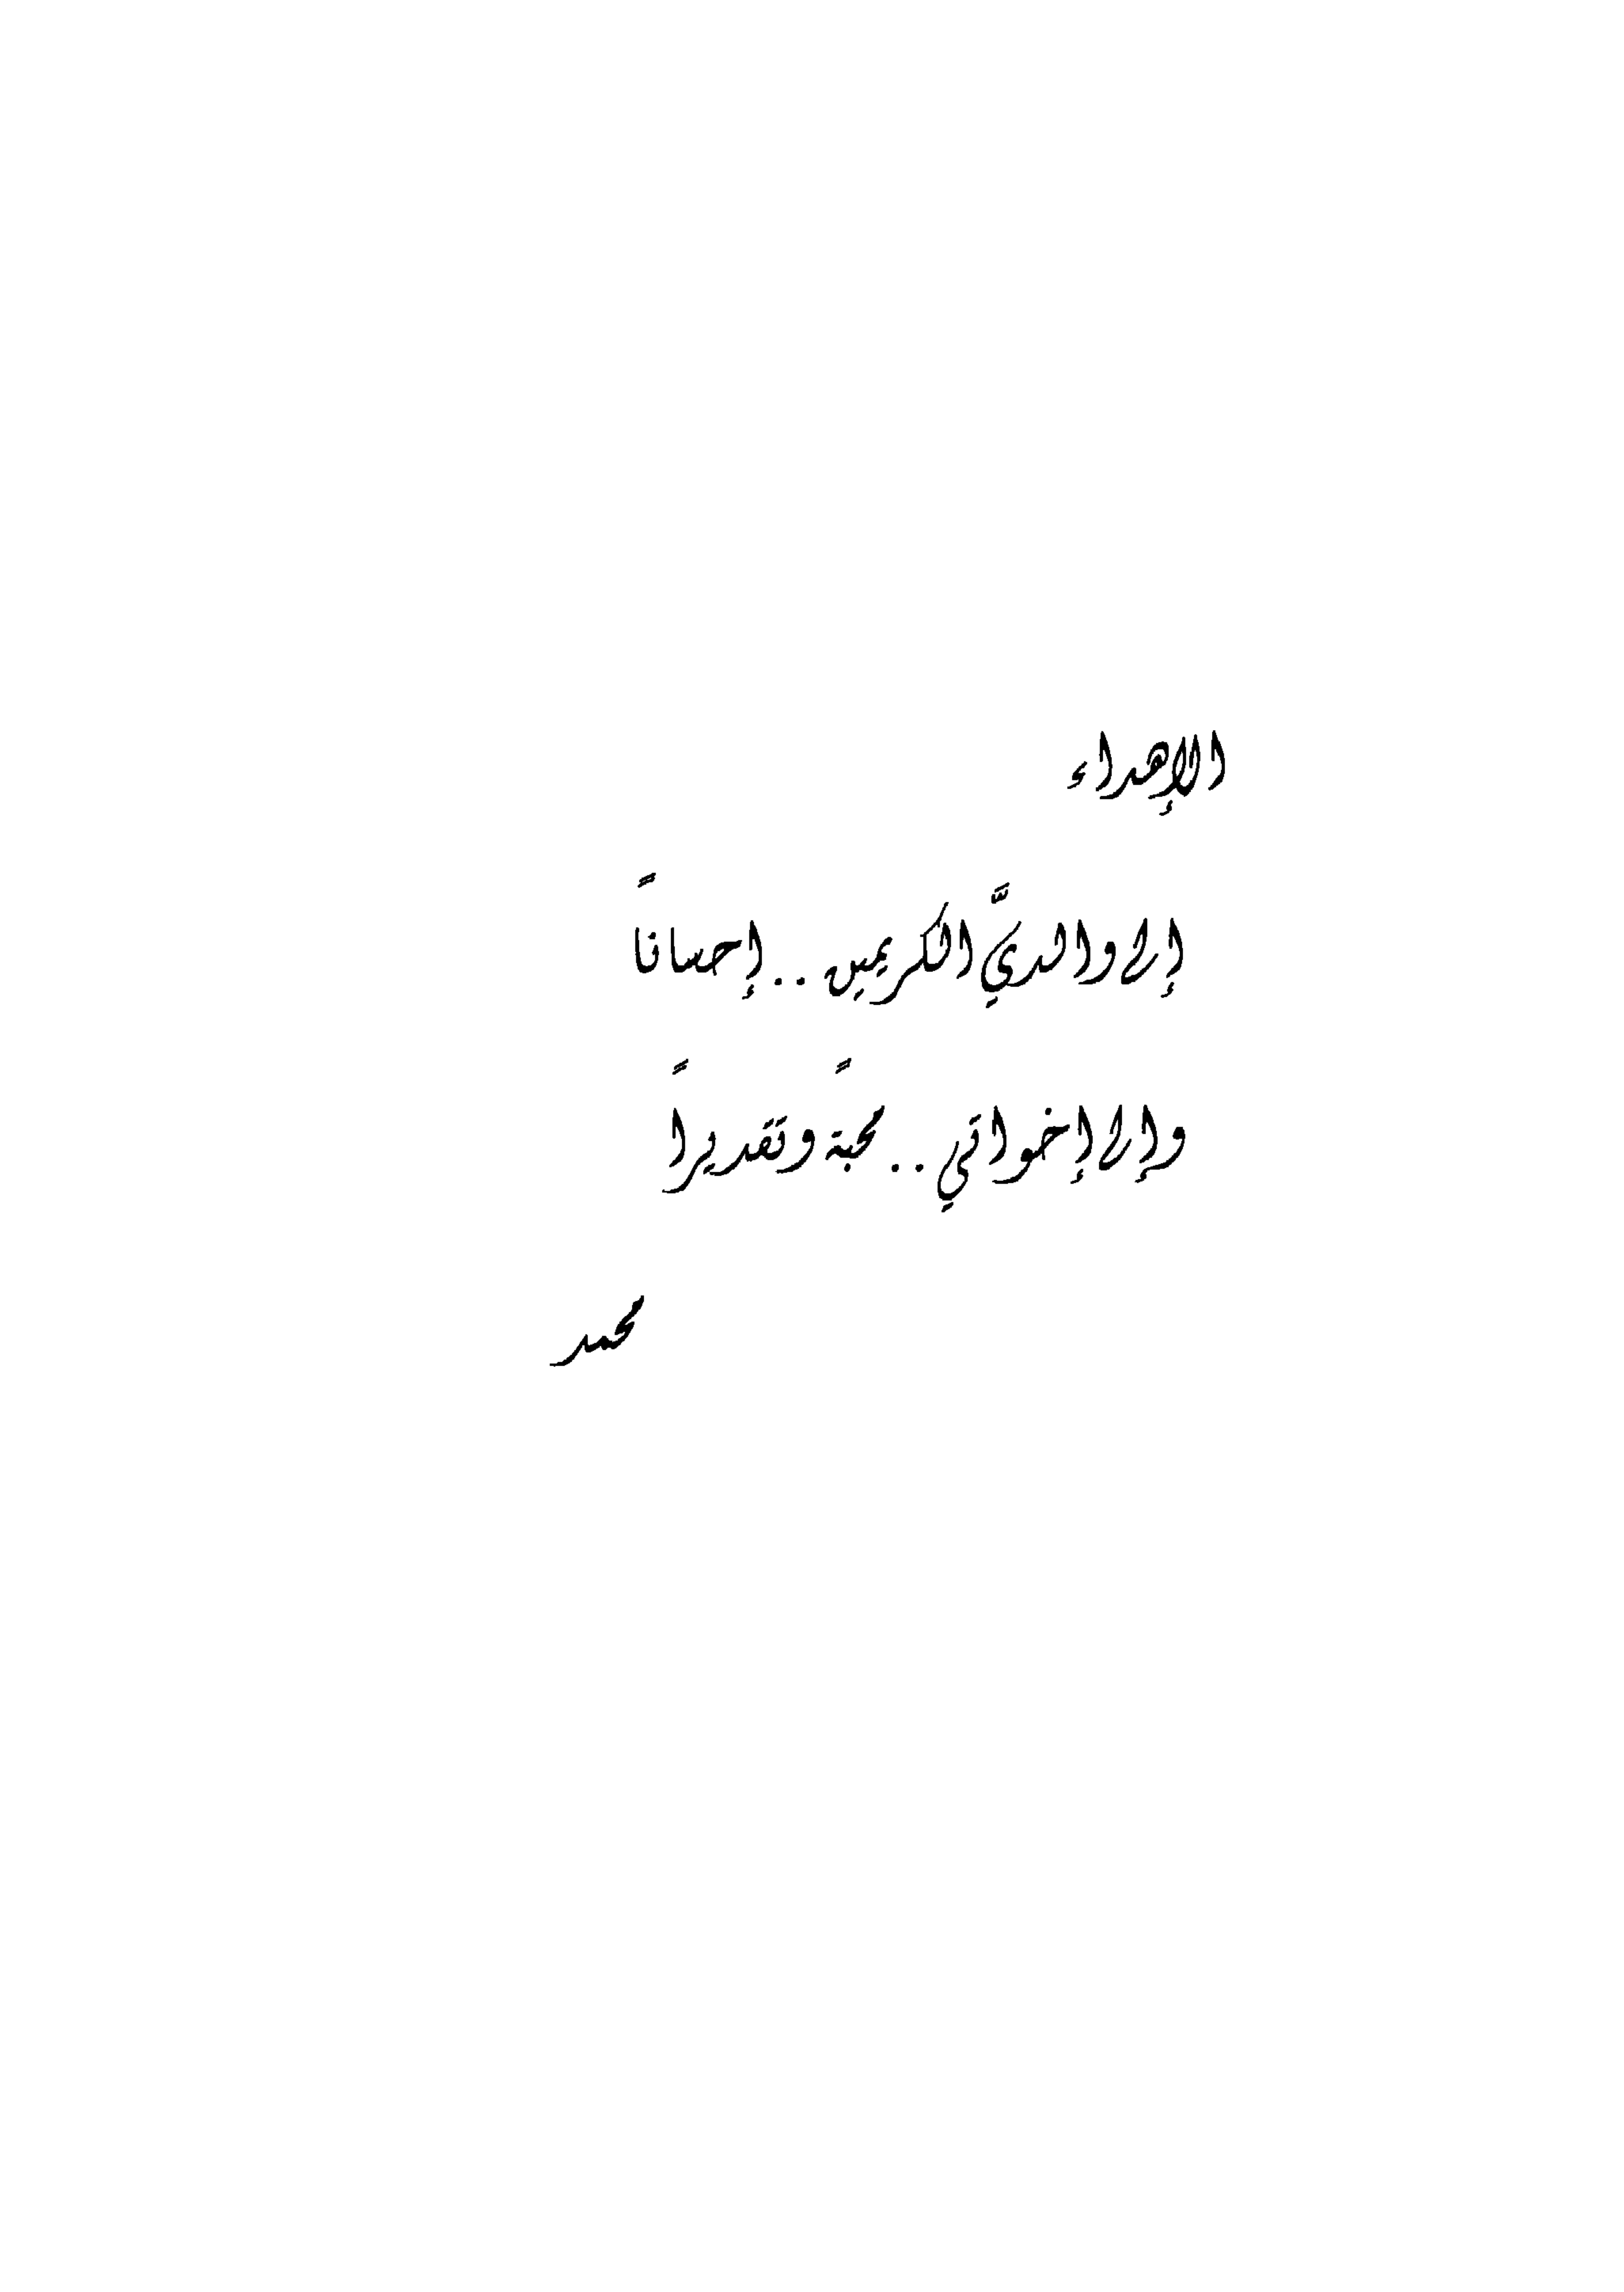 الإهداء
إلى والديَّ الكريمين .. إحساناً
وإلى إخواتي .. محبةً وتقديراً
محمد